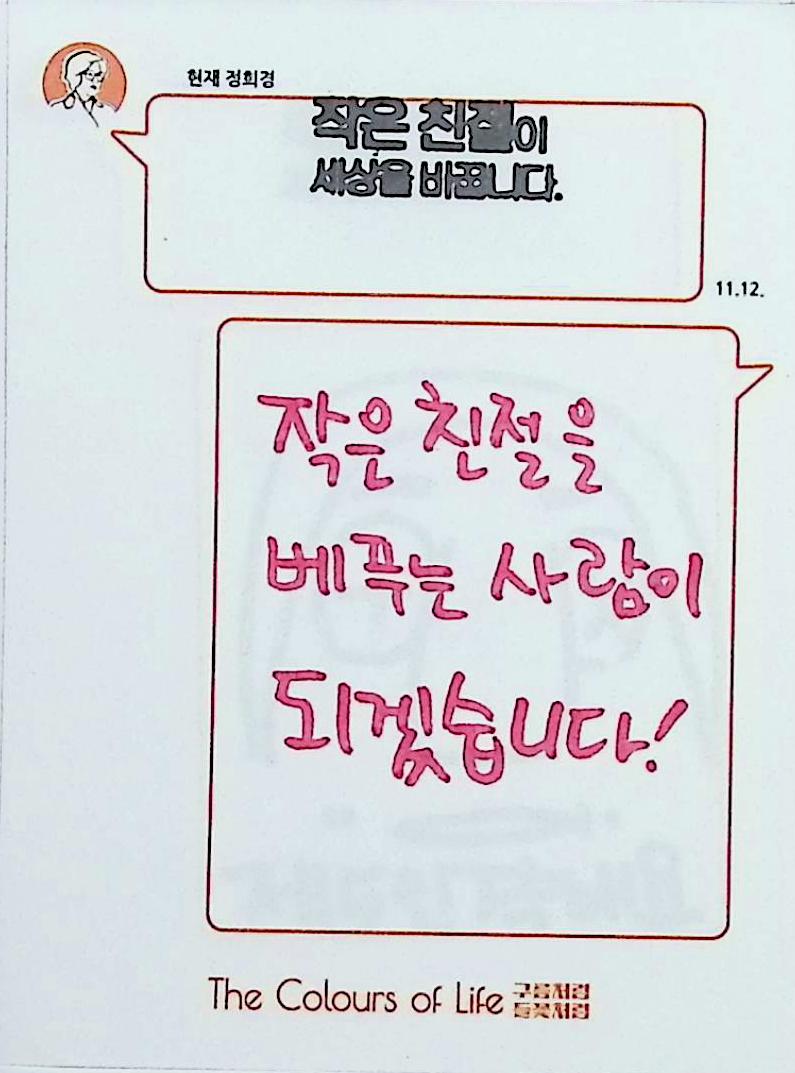 현재 정희경
작은 친절이
세상을 바꿉니다.
11.12.
작은 친절을
베푸는 사람이
되겠습니다!
The Colours of Life 구름처럼
들꽃처럼